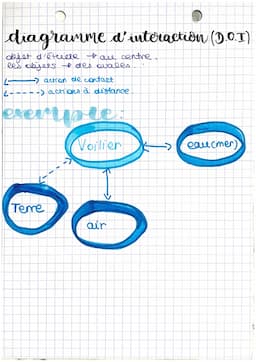 diagramme d'interaction (D.O.I)
objet d'étude → au centre.
les objets → des ovales.
<---> action de contact
<- - - -> actions à distance
exemple:
Voilier
eau(mer)
Terre
air